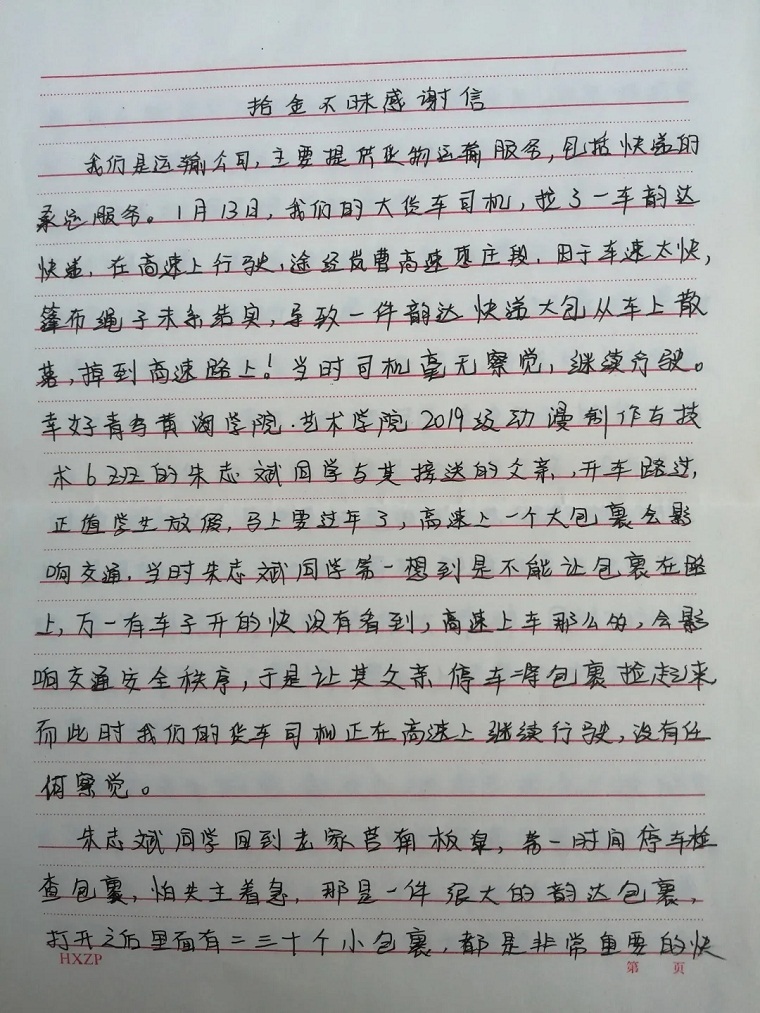 拾金不昧感谢信
我们是运输公司,主要提供货物运输服务,包括快递的
承运服务。1月13日,我们的大货车司机,拉了一车韵达
快递,在高速上行驶,途经岚曹高速枣庄段,由于车速太快,
篷布绳子未系结实,导致一件韵达快递大包从车上散
落,掉到高速路上!当时司机毫无察觉,继续行驶。
幸好青岛黄海学院.艺术学院2019级动漫制作与技
术6班的朱志斌同学与其接送的父亲,开车路过,
正值学生放假,马上要过年了,高速上一个大包裹会影
响交通,当时朱志斌同学第一想到是不能让包裹在路
上,万一有车子开的快没有看到,高速上车那么多,会影
响交通安全秩序,于是让其父亲停车将包裹捡起来
而此时我们的货车司机正在高速上继续行驶,没有任
何察觉。
朱志斌同学回到老家莒南板泉,第一时间停车检
查包裹,怕失主着急,那是一件很大的韵达包裹,
打开之后里面有二三十个小包裹,都是非常重要的快
HXZP
第 页